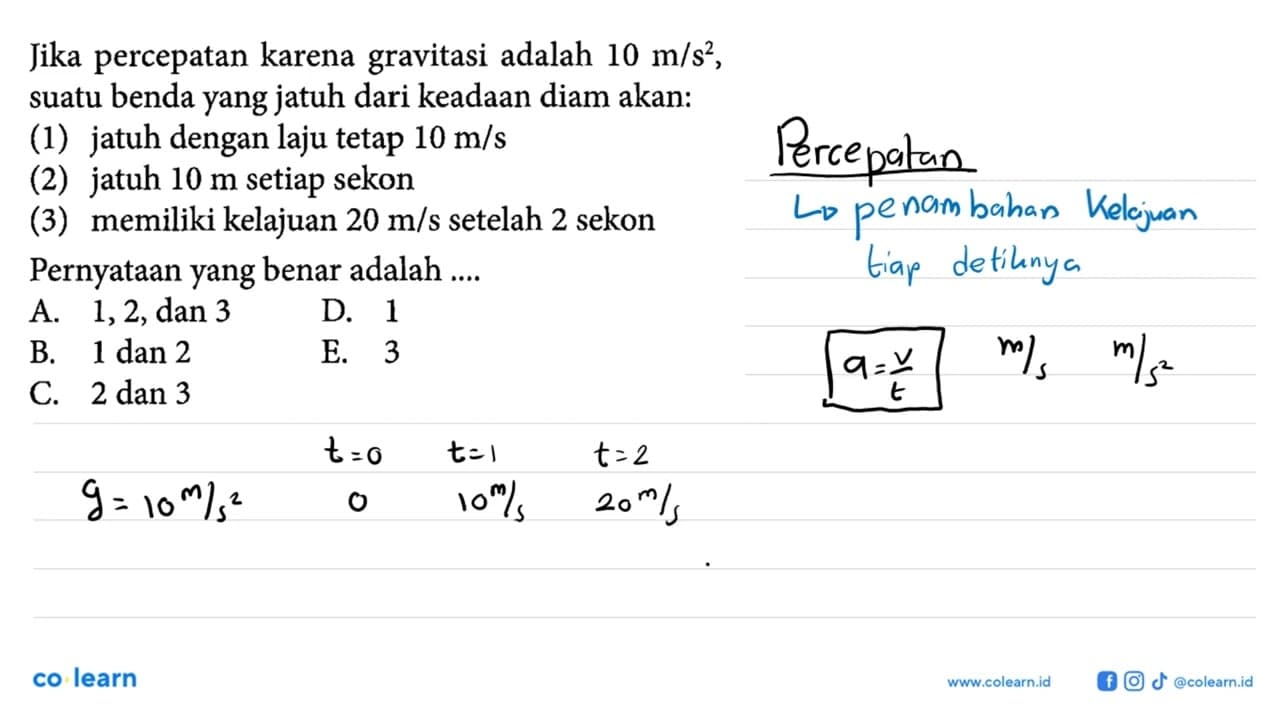 Jika percepatan karena gravitasi adalah 10 m/s²,
suatu benda yang jatuh dari keadaan diam akan:
(1) jatuh dengan laju tetap 10 m/s
(2) jatuh 10 m setiap sekon
(3) memiliki kelajuan 20 m/s setelah 2 sekon
Pernyataan yang benar adalah ....
A. 1, 2, dan 3 D. 1
B. 1 dan 2 E. 3
C. 2 dan 3
Percepatan
↳ penambahan Kelajuan
tiap detiknya
a = v/t m/s m/s²
t=0 t=1 t=2
g = 10 m/s² 0 10 m/s 20 m/s
co learn
www.colearn.id @colearn.id